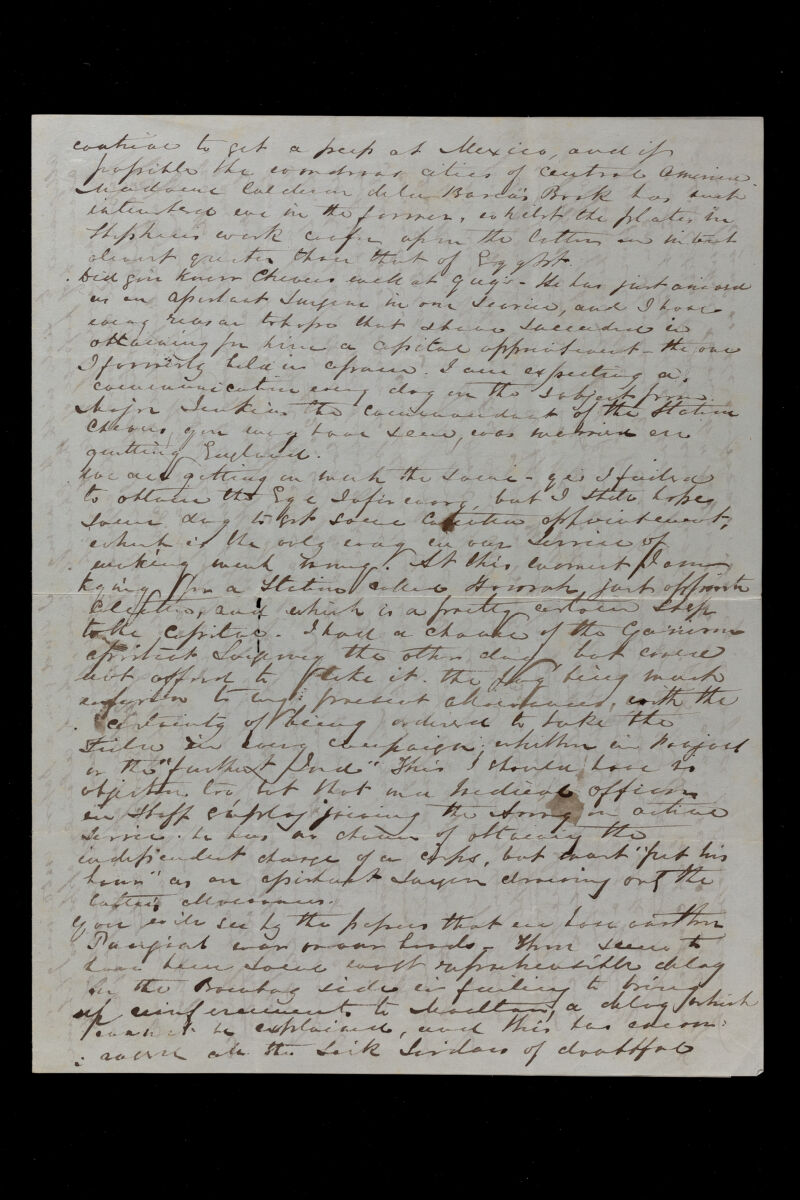 contrive to get a peep at Mexico, and if
possible the wondrous cities of Central America.
Madame Calderon de la Barca's Book has much
interested me in the former, whilst the plates in
Stephens work confer upon the latter an interest
almost greater than that of Egypt.
Did you know Chevers well at Guys - He has just arrived
as an Assistant Surgeon in our Service, and I have
every reason to hope that I have succeeded in
obtaining for him a capital appointment - the one
I formerly held in . I am expecting a
communication every day on the subject from
Major Jenkins the commandant of the Station
Chevers, you may have seen, was married on
quitting England.
We are getting on much the same - ye I failed
to obtain the Eye Infirmary, but I still hope
some day to get some Calcutta appointment,
which is the only way in our Service of
making much money. At this moment I am
trying for a Station called Howrah, just opposite
Calcutta, and which is a pretty certain step
to the Capital. I had a chance of the Garrison
Assistant Surgeoncy the other day but could
not afford to take it. the pay being much
inferior to my present allowances, with the
certainty of being ordered to take the
Field in every campaign, whether in
or the "furthest Ind" This I should have no
objection too but that in a Medical officer
in Staff employ joining the Army on active
Service. he has no chance of obtaining the
independent charge of a Corps, but must "put his
hours" as an assistant Surgeon drawing only the
latter's allowances.
You will see by the papers that we have another
Punjab war on our hands - There seems to
have been some most reprehensible delay
on the Bombay side in failing to bring
up reinforcements to Mooltan, a delay which
cannot be explained, and this has encou-
raged all the Seik Sirdars of doubtful